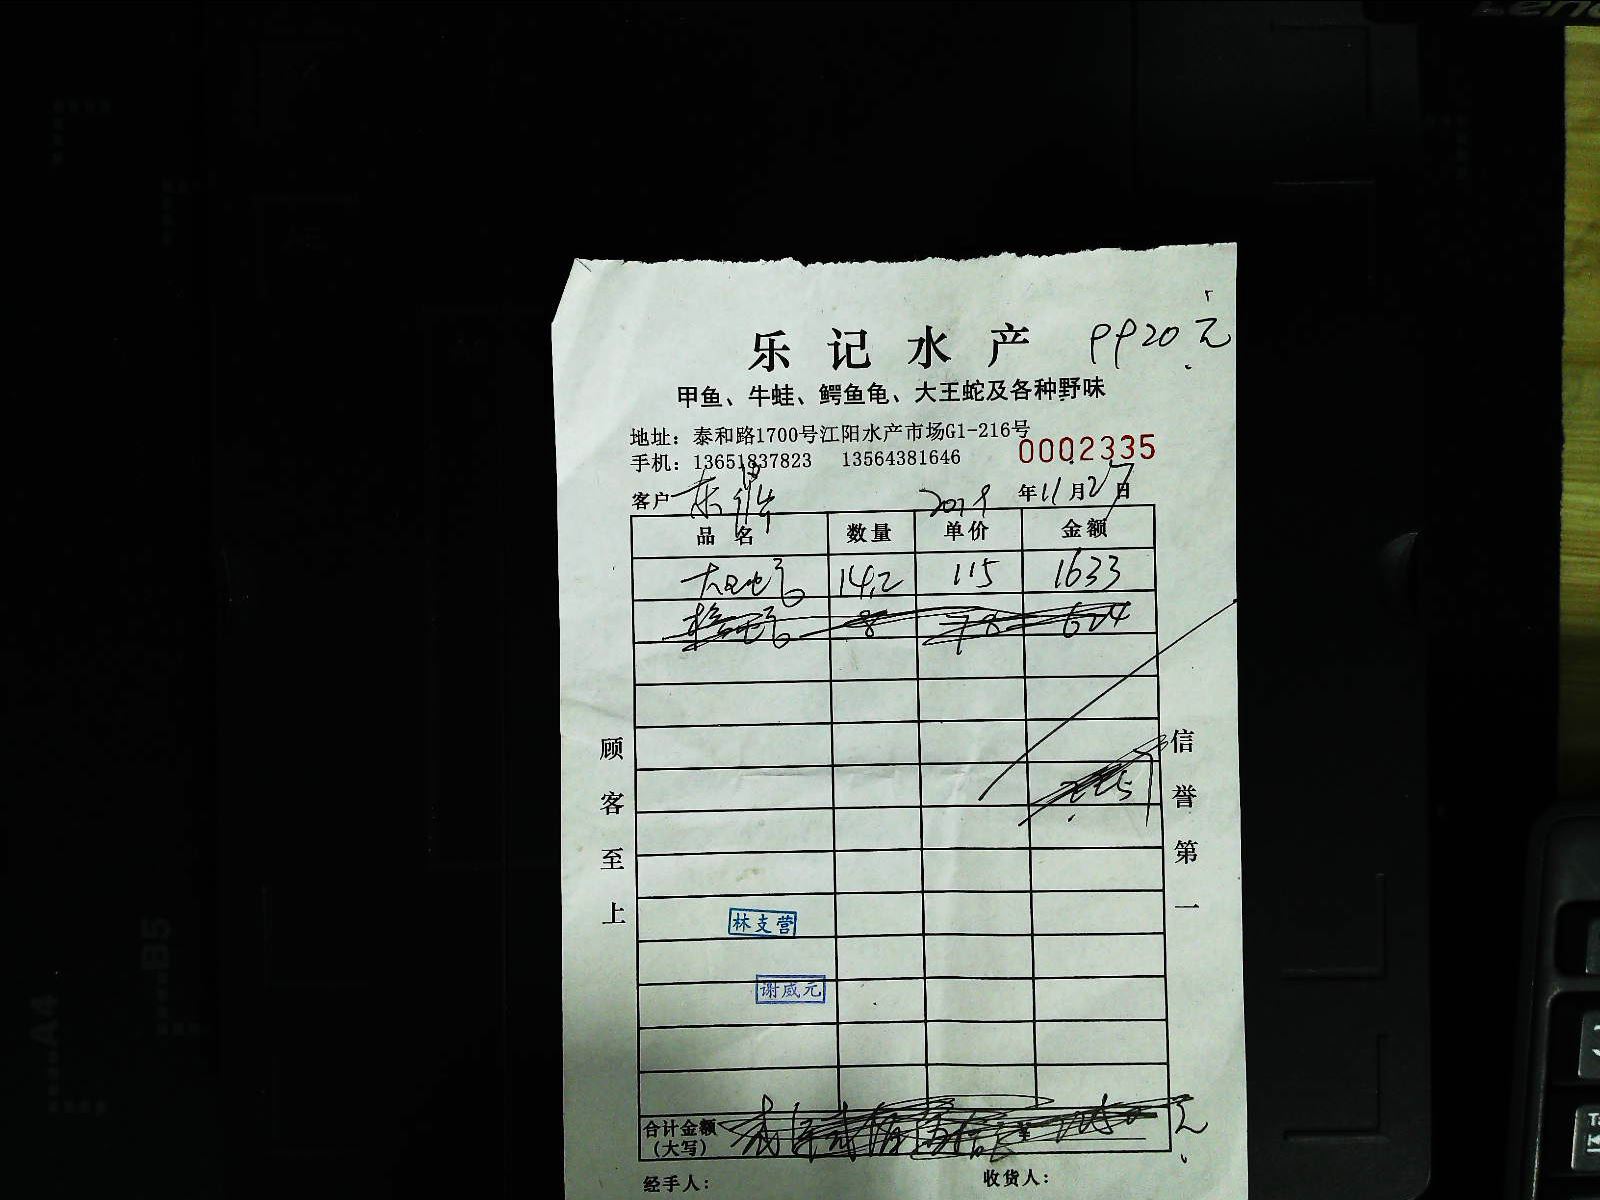 Leno
乐记水产
9920元
甲鱼、牛蛙、鳄鱼龟、大王蛇及各种野味
地址：泰和路1700号江阳水产市场G1-216号
手机：13651837823 13564381646
0002335
客户 2019年11月27日
品名 数量 单价 金额
14.2 115 1633
8 78 624
顾客至上
信誉第一
林支营
谢威元
合计金额
（大写） 元
经手人： 收货人：
A4
B5